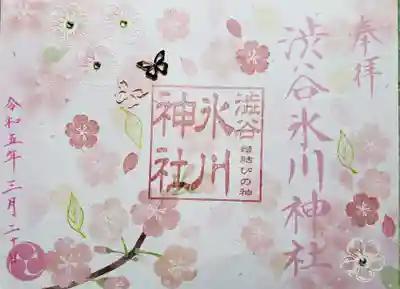 奉拝
渋谷氷川神社
澁谷
縁結びの神
氷川
神社
令和五年三月二十